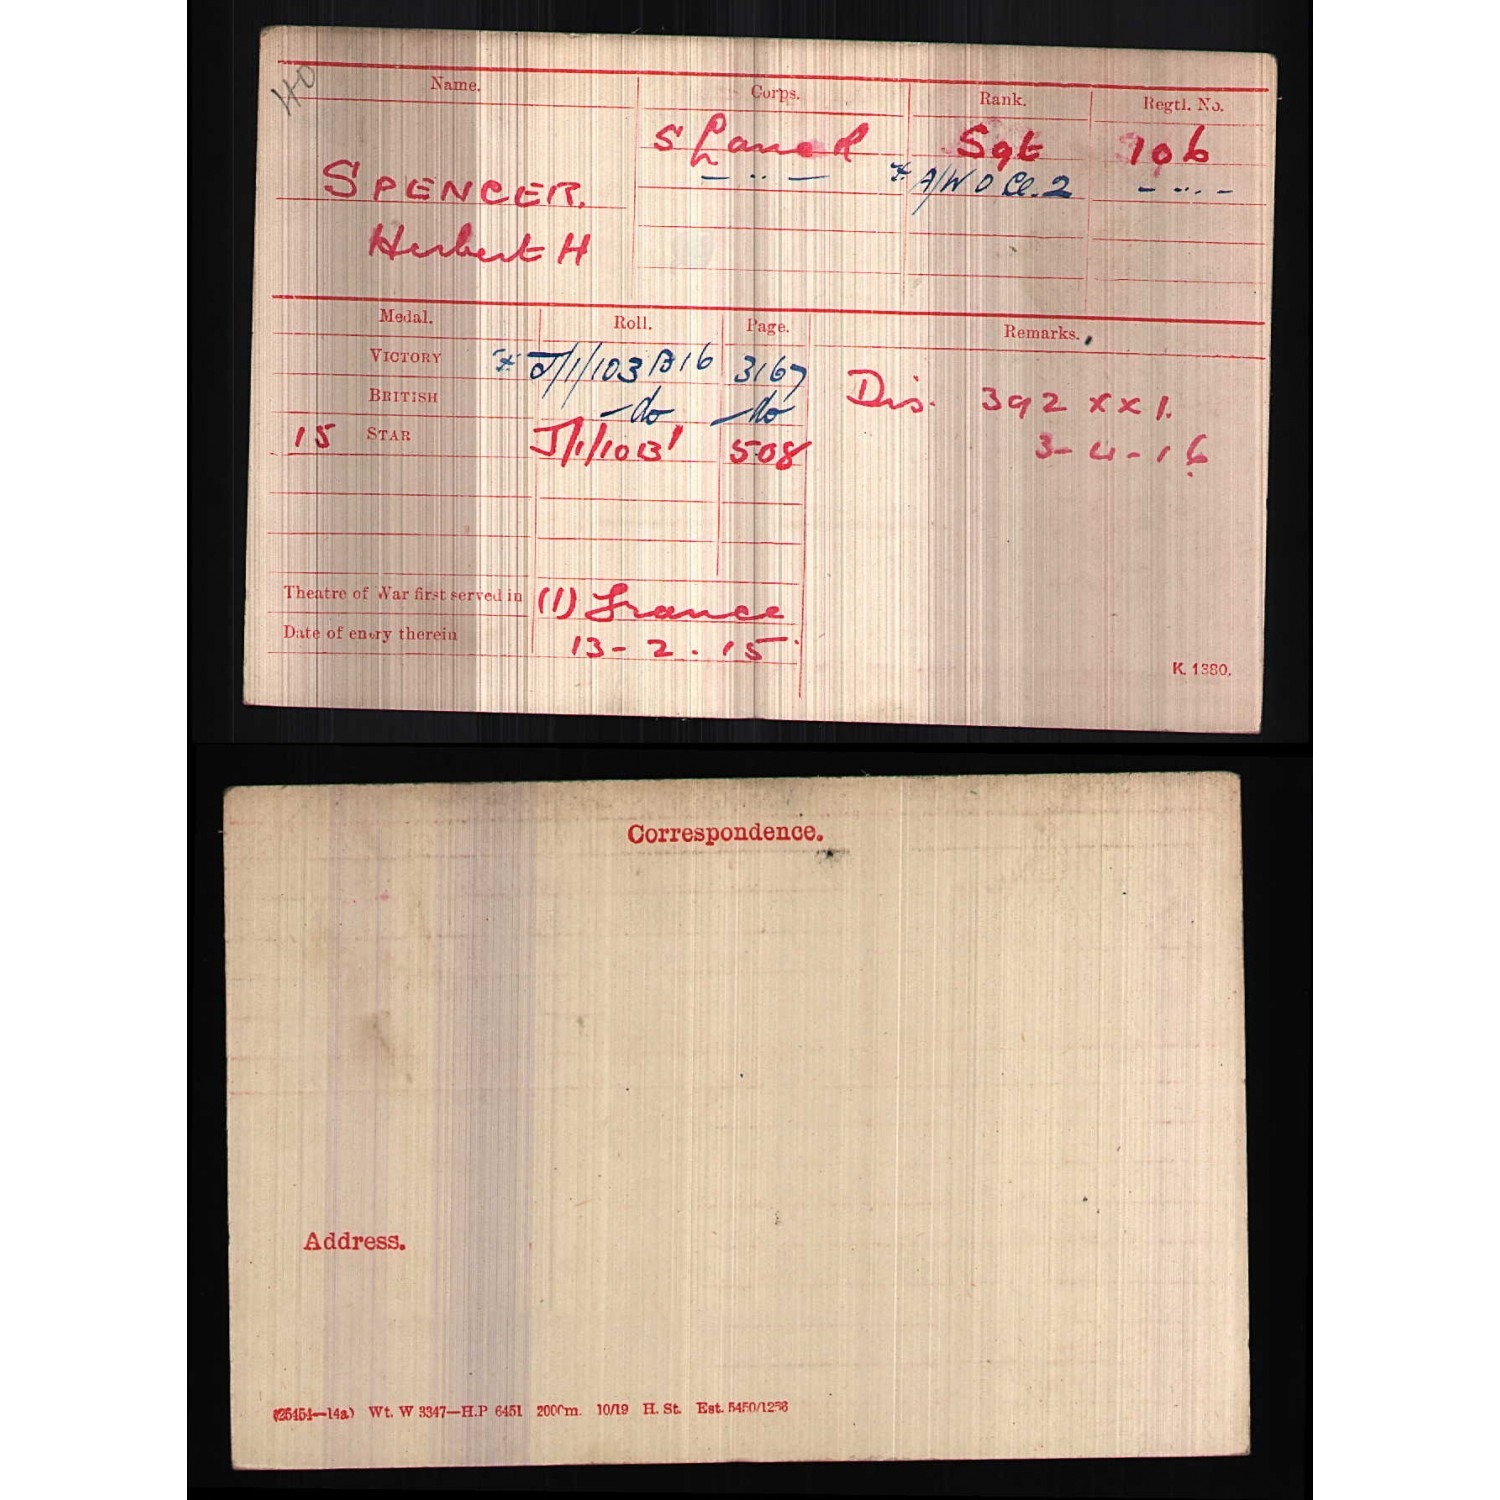 HO
Name. Corps. Rank. Regtl. No.
S Lanc R Sgt 106
SPENCER. — .. — * A/W O Cl. 2 — ... —
Herbert H
Medal. Roll. Page. Remarks.
VICTORY * J/1/103 B16 3167
BRITISH —do —do
Dis. 392 xx 1.
15 STAR J/1/10B' 508
3-4-16
Theatre of War first served in (1) France
Date of entry therein 13-2.15.
K. 1380.
Correspondence.
Address.
(25454—14a) Wt. W 3347—H.P 6451 2000m. 10/19 H. St. Est. 5450/1258